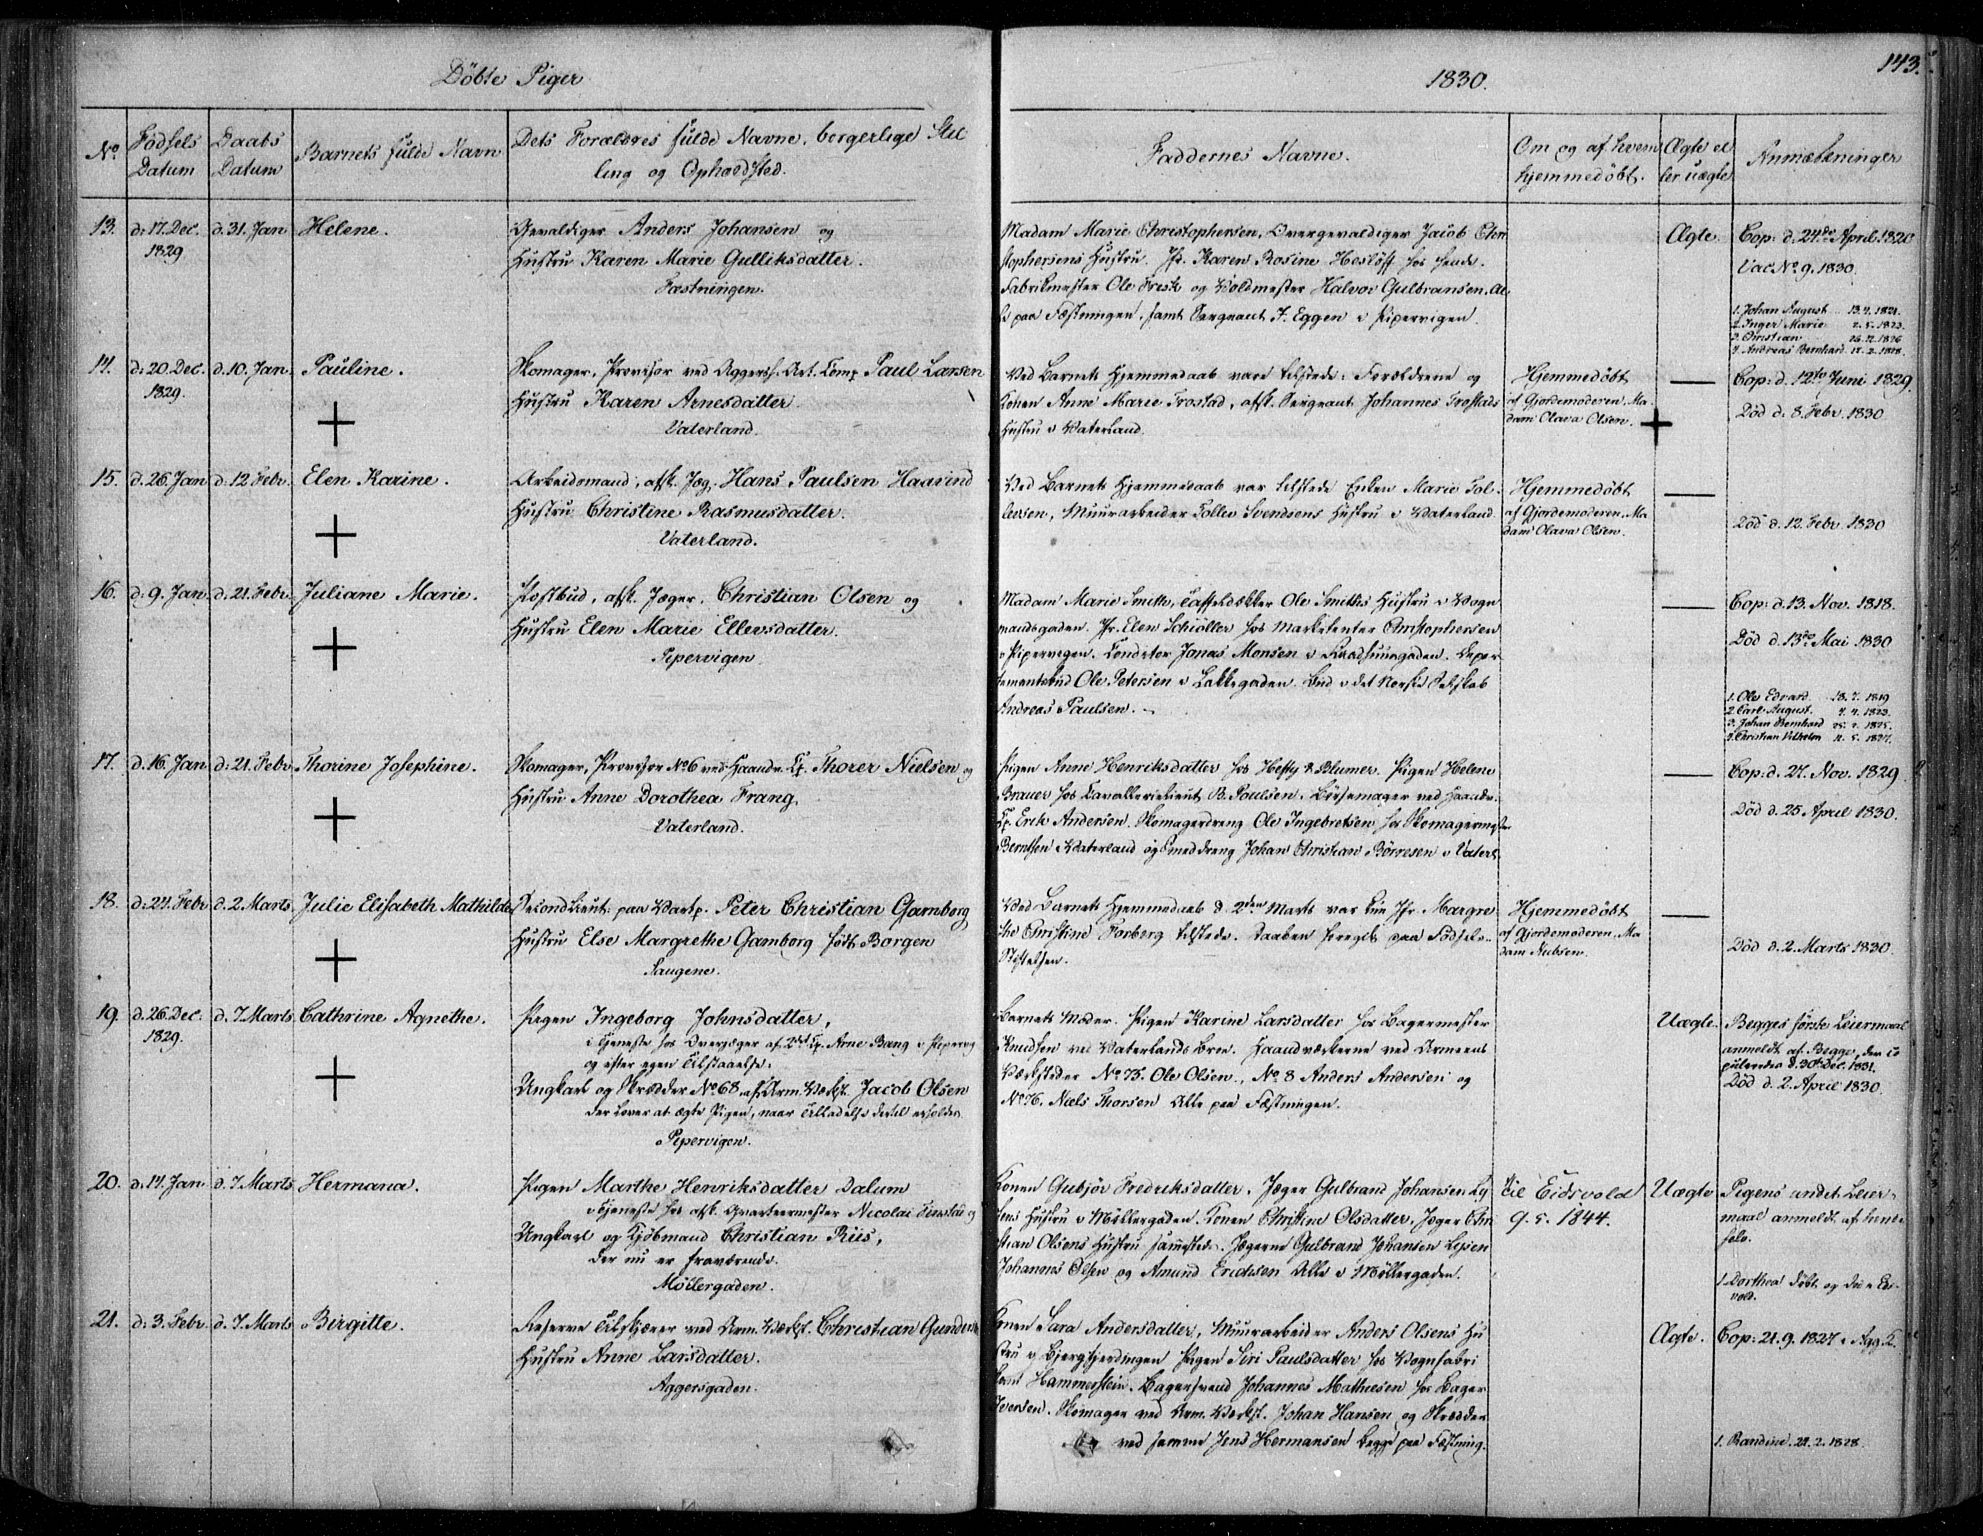 Döbte Piger
1830.
143.
No
Födsels Datum
Daabs Datum
Barnets fulde Navn
Dets Forældres fulde Navne, borgerlige Stilling og Opholdsted.
Faddernes Navne.
Om og af hvem hjemmedöbt.
Ægte eller uægte
Anmærkninger
13.
d: 17. Dec. 1829
d. 31. Jan
Helene.
Gevaldiger Anders Johansen og
Hustru Karen Marie Gulliksdatter.
Fæstningen.
Madam Marie Christophersen, Overgevaldiger Jacob Chri
stophersens Hustru. Jfr. Karen Rosine Hoslöff hos hende.
Fabrikmester Ole Fresk og Voldmester Halvor Gulbransen, Al
le paa Fæstningen, samt Sergeant J. Eggen i Pipervigen.
Ægte.
Cop: d. 24de April 1820
Vac No 9. 1830.
1. Johan August
2. Inger Marie 2. 5. 1823.
3. Christian
4. Andreas Bernhard
14.
d: 20. Dec. 1829.
d. 10. Jan
Pauline.
Skomager, Provisor ved Aggersh. Art. Comp. Paul Larsen
Hustru Karen Arnesdatter.
Vaterland.
Ved Barnets Hjemmedaab vare tilstede: Forældrene og
Konen Anne Marie Frostad, afsk. Sergeant Johannes Frostads
Hustru i Vaterland.
Hjemmedöbt
af Gjordemoderen, Ma
dam Olava Olsen.
Cop: d. 12te Juni 1829
Död d. 8. Febr. 1830
15.
d. 26. Jan
d. 12 Febr.
Elen Karine.
Arbeidsmand, afsk. Jæg. Hans Paulsen Haarind
Hustru Christine Rasmusdatter.
Vaterland.
Ved Barnets Hjemmedaab var tilstede Enken Marie Tol
lessen, Muurarbeider Tollev Svendsens Hustru i Vaterland
Hjemmedöbt
af Gjordemoderen, Ma
dam Olava Olsen.
Död d. 12. Febr 1830
16.
d: 9. Jan.
d. 21. Febr.
Juliane Marie.
Postbud, afsk. Jæger, Christian Olsen og
Hustru Elen Marie Ellevsdatter.
Pipervigen.
Madam Marie Smith, Taffeldækker Ole Smiths Hustru i Vogn
mandsgaden. Jfr. Elen Schiöller hos Marketenter Christophersen
i Pipervigen. Conditor Jonas Monsen i Raadhuusgaden. Depar
tementsbud Ole Petersen i Lakkegaden. Bud i det Norske Selskab
Andreas Paulsen.
Cop: d. 13. Nov. 1818.
Död d. 13de Mai 1830
1. Ole Edvard. 1819
2. Carl August. 1823.
3. Johan Bernhard 1825.
4. Christian Vilhelm 11. 5. 1827.
17.
d. 16. Jan
d: 21. Febr
Thorine Josephine.
Skomager, Provisor No 6 ved Haandv. Cp. Thorer Nielsen og
Hustru Anne Dorothea Frang.
Vaterland.
Pigen Anne Henriksdatter hos Hefty & Blumer. Pigen Helene
Brauer hos Cavallerielieut B. Poulsen. Börsemager ved Haandv.
Cp. Erik Andersen. Skomagerdreng Ole Ingebretsen hos Skomagermester
Berntsen i Vaterland og Smeddreng Johan Christian Börresen i Vaterl.
Cop: d. 27. Nov. 1829
Död d. 25 April 1830.
18.
d: 24. Febr
d. 2. Marts
Julie Elisabeth Mathilde
Secondlieut: paa Vartp. Peter Christian Gamborg
Hustru Else Margrethe Gamborg födt Borgen
Saugene.
Ved Barnets Hjemmedaab d. 2den Marts var kun Jfr. Margre
the Christine Forberg tilstede. Daaben foregik paa Födsels-
Stiftelsen.
Hjemmedöbt
af Gjordemoderen, Ma
dam Nielsen.
Död d. 2. Marts 1830.
19.
d. 26. Dec. 1829.
d. 7. Marts
Cathrine Agnethe.
Pigen Ingeborg Johnsdatter,
i tjeneste hos Overjæger af 2det Cp. Arne Bang i Piperv.
og efter egen Tilstaaelse.
Ungkarl og Skrædder No 68 af Arm. Værkst. Jacob Olsen
der lover at ægte Pigen, naar Tilladelse dertil erholdes
Pipervigen.
Barnets Moder. Pigen Karine Larsdatter hos Bagermester
Knudsen ved Vaterlands Broe. Haandværkerne ved Armeens
Værksteder No 75. Ole Olsen, No 8 Anders Andersen og
No 76. Niels Thorsen Alle paa Fæstningen.
Uægte.
Begges förste Leiermaal
anmeldt af Begge, der co
puleredes d. 30te Dec. 1831.
Död d. 2. April 1830.
20.
d. 14. Jan
d. 7 Marts
Hermana.
Pigen Marthe Henriksdatter Dalum
i tjeneste hos afsk. Qvarteermester Nicolai Finstad og
Ungkarl og Kjöbmand Christian Riis,
der nu er fraværende.
Möllergaden.
Konen Gubjör Fredriksdatter, Jæger Gulbrand Johansen Ly
sens Hustru i Möllergaden. Konen Christine Olsdatter, Jæger Chri
stian Olsens Hustru sammested. Jægerne Gulbrand Johansen Lysen
Johannes Olsen og Amund Erichsen Alle i Möllergaden.
til Eidsvold
9. 5. 1844.
Uægte
Pigens andet Leier-
maal anmeldt af hende
selv.
1. Dorthea döbt og död i Eids-
vold.
21.
d: 3. Febr.
d. 7. Marts
Birgitte.
Reserve Tilskjærer ved Arm. Værkst. Christian Gunders
Hustru Anne Larsdatter.
Aggersgaden.
Konen Sara Andersdatter, Muurarbeider Anders Olsens Hu
stru i Bjergfjerdingen Pigen Siri Paulsdatter hos Vognfabri
kant Hammerstein. Bagersvend Johannes Mathiesen hos Bager
Iversen. Skomager ved Arm. Værkst. Johan Hansen og Skrædder
ved samme Jens Hermansen begge paa Fæstning.
Ægte.
Cop: 21. 9. 1827 i Agg. K.
1. Randine 1828.